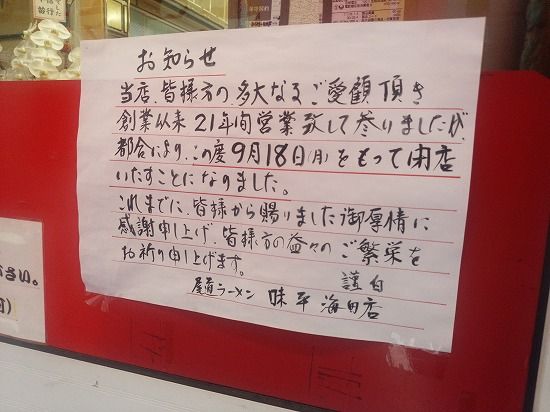 お知らせ
当店、皆様方の、多大なるご愛顧頂き
創業以来21年间営業致して参りましたが、
都合により、この度9月18日(月)をもって闭店
いたすことになりました。
これまでに、皆様から賜りました御厚情に
感謝申し上げ、皆様方の益々のご繁栄を
お祈り申し上げます。
謹白
屋台ラーメン 味平 海田店
さい。